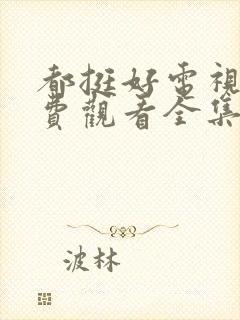 都挺好電視
費觀看全集
波林